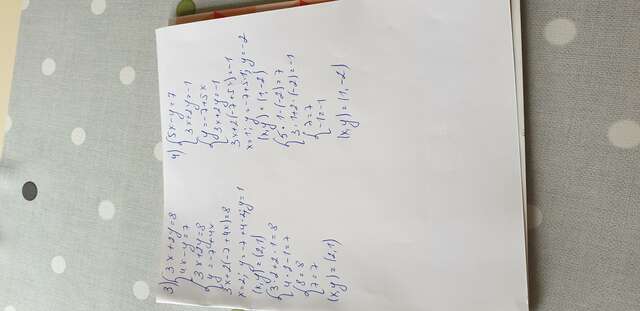 3) {3x+2y=8
{4x-y=7
{3x+2y=8
{y=-7+4x
3x+2(-7+4x)=8
x=2; y=-7+4·2; y=1
(x,y)=(2,1)
{3·2+2·1=8
{4·2-1=7
{8=8
{7=7
(x,y)=(2,1)
4) {5x-y=7
{3x+2y=-1
{y=-7+5x
{3x+2y=-1
3x+2(-7+5x)=-1
x=1; y=-7+5·1; y=-2
(x,y)=(1,-2)
{5·1-(-2)=7
{3·1+2·(-2)=-1
{7=7
{-1=-1
(x,y)=(1,-2)